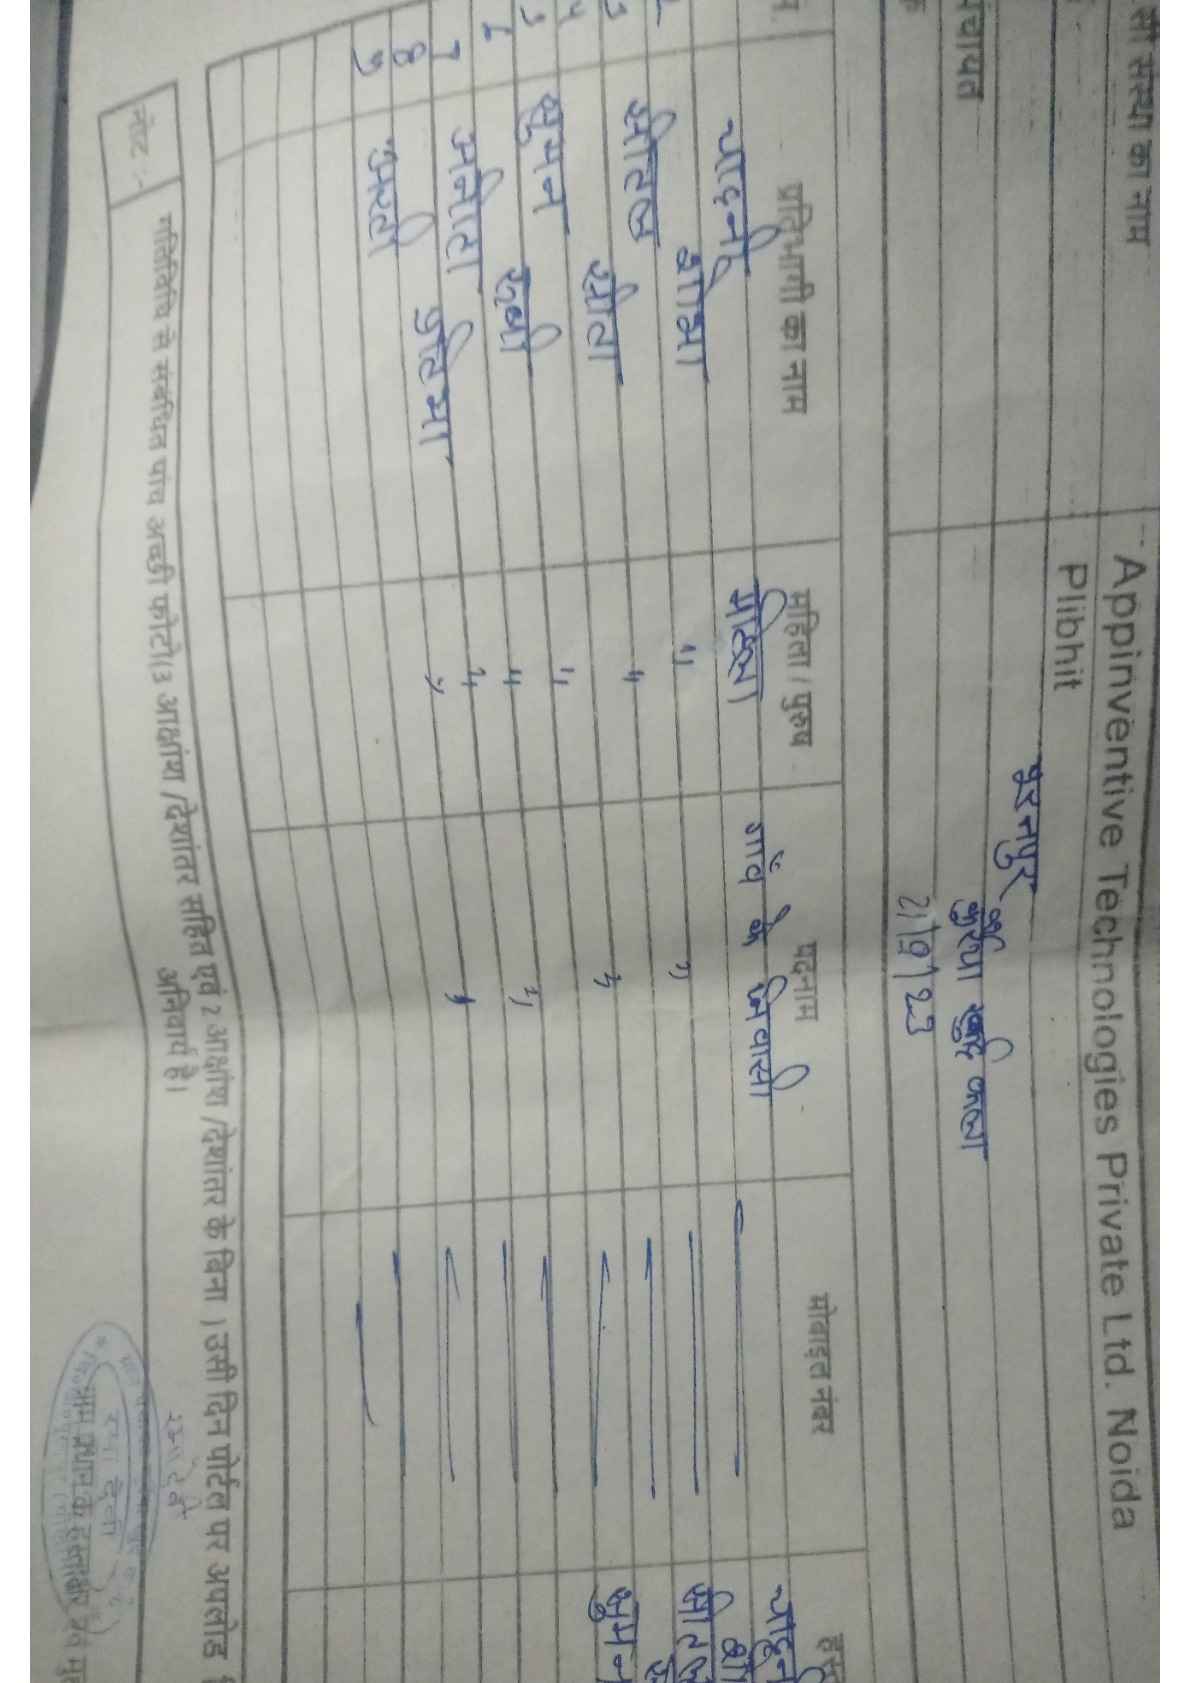 सी संस्था का नाम Appinventive Technologies Private Ltd. Noida
Plibhit
पुरनपुर
पंचायत कुर्रैया खुर्द कला
21/9/23
प्रतिभागी का नाम महिला / पुरुष पदनाम मोबाइल नंबर
चादँनी महिला गाँव के निवासी
शोभा " "
3 शीतल "
4 सीता " "
सुमन " "
6 रूबी "
7 अनीता " "
8 प्रतिभा "
9 भारती
नोट :- गतिविधि से संबंधित पांच अच्छी फोटो(3 आक्षांश /देशांतर सहित एवं 2 आक्षांश /देशांतर के बिना ) उसी दिन पोर्टल पर अपलोड
अनिवार्य है।
रमा देवी
ग्राम प्रधान के हस्ताक्षर एवं